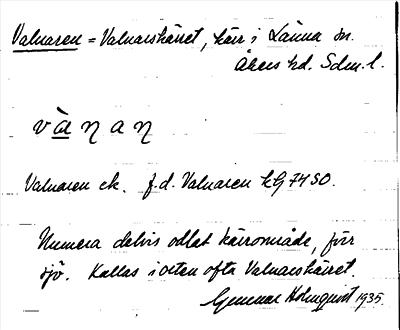 Valnaren = Valnarskärret, kärr i Länna sn.
Åkers hd. Sdm. l.
v à ŋ a ŋ
Valnaren ek. f.d. Valnaren kG 7450.
Numera delvis odlat kärrområde, förr
sjö. Kallas i orten ofta Valnarskärret.
Gunnar Holmquist 1935.